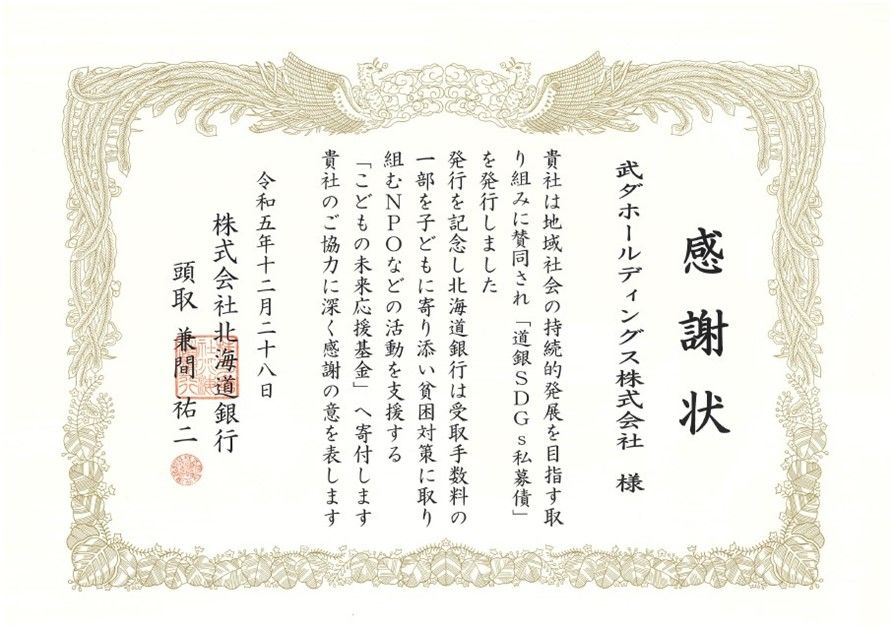 感謝状
武ダホールディングス株式会社 様
貴社は地域社会の持続的発展を目指す取
り組みに賛同され「道銀SDGs私募債」
を発行しました
発行を記念し北海道銀行は受取手数料の
一部を子どもに寄り添い貧困対策に取り
組むNPOなどの活動を支援する
「こどもの未来応援基金」へ寄付します
貴社のご協力に深く感謝の意を表します
令和五年十二月二十八日
株式会社北海道銀行
頭取 兼間 祐二